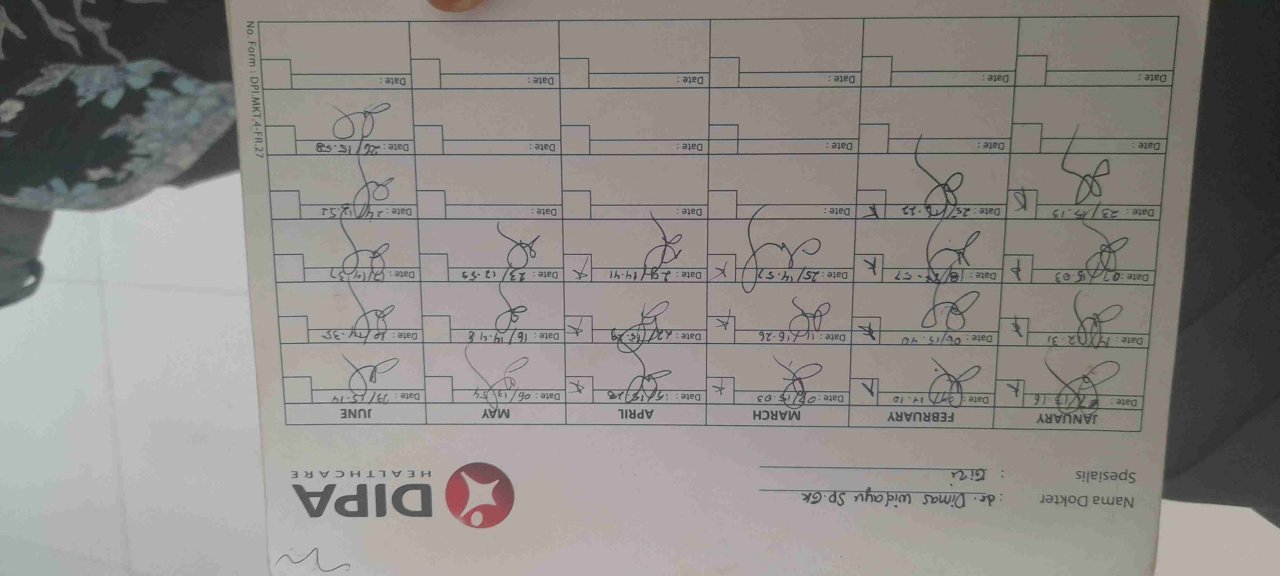 DIPA
HEALTHCARE
Nama Dokter : dr. Dimas Widayu Sp.GK
Spesialis : Gizi
JANUARY FEBRUARY MARCH APRIL MAY JUNE
Date: Date: 14.10 Date: 05/15.03 Date: Date: 06/13.54 Date: 03/15.14
Date: Date: 06/15.40 Date: 11/16.26 Date: 22/ Date: 16/14.48 Date: 10/14.35
Date: 07/15.03 Date: 18/ .57 Date: 25/14.57 Date: 29/14.41 Date: 23/13.55 Date: 12/14.57
Date: 23/15.15 Date: 25/ .22 Date: Date: Date: Date: 24/ .52
Date: Date: Date: Date: Date: Date: 26/15.58
Date: Date: Date: Date: Date: Date:
No. Form : DPI.MKT.4-FR.27